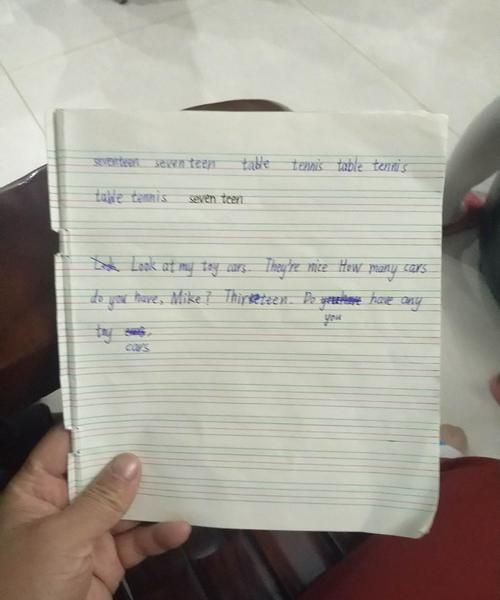 seventeen seventeen table tennis table tennis
table tennis seventeen
Look at my toy cars. They're nice How many cars
do you have, Mike? Thirteen. Do you have any
toy cars